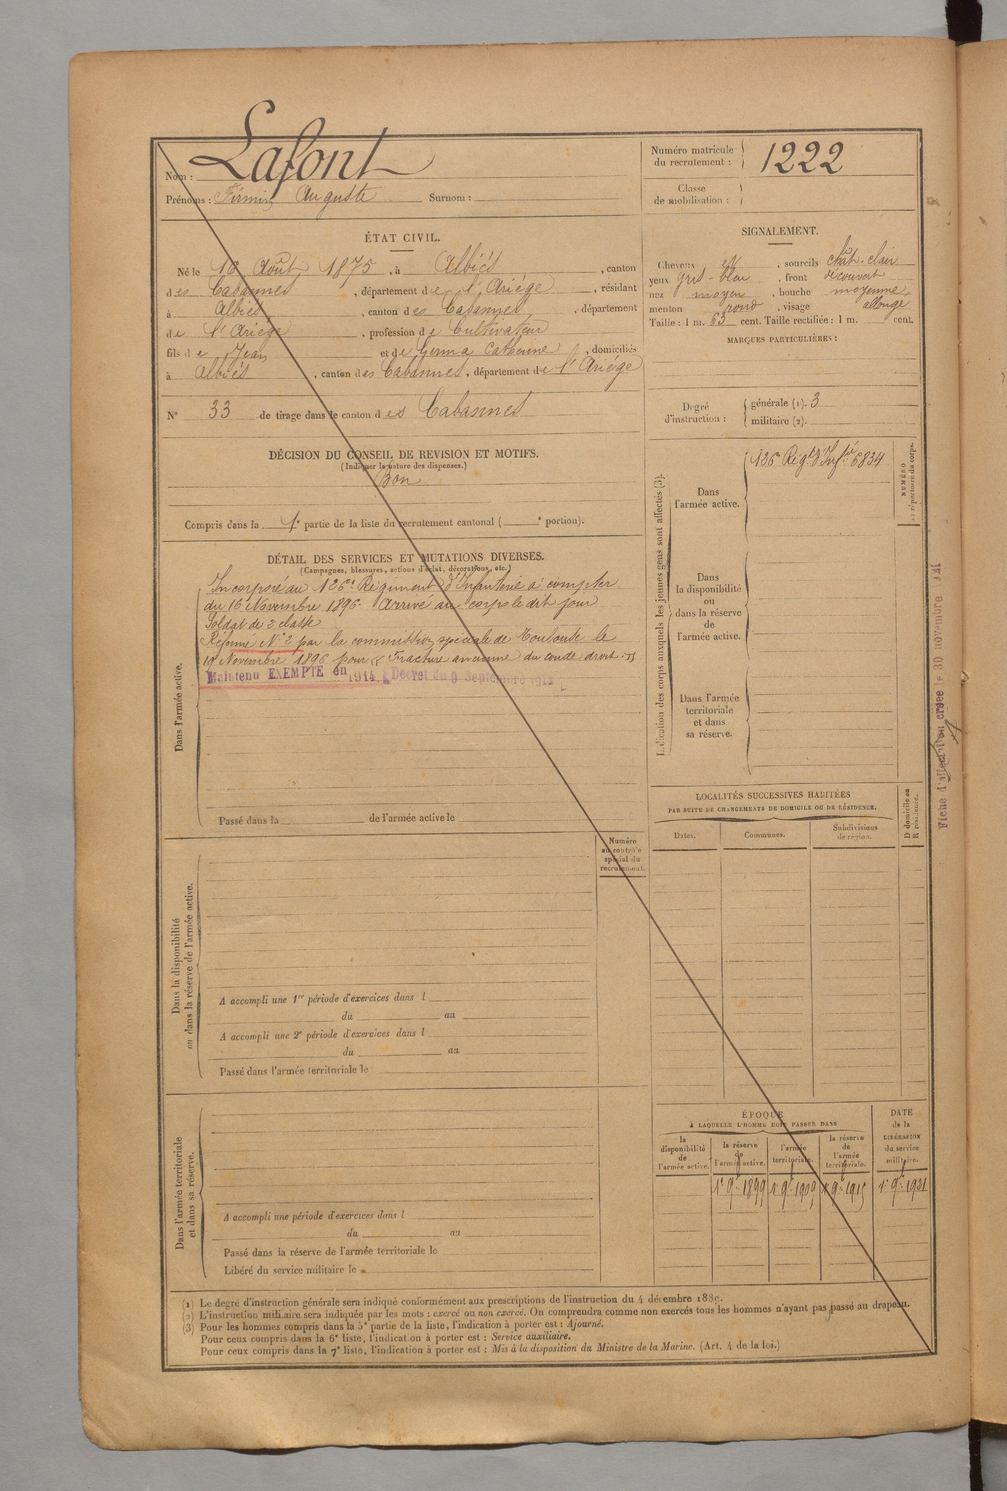 Nom : Lafont
Prénoms : Firmin Auguste Surnom :
Numéro matricule du recrutement : 1222
Classe de mobilisation :
ÉTAT CIVIL.
Né le 18 Août 1875, à Albiès, canton
des Cabannes, département de l'Ariège, résidant
à Albiès, canton des Cabannes, département
de l'Ariège, profession de Cultivateur
fils de Jean et de Germa Catherine, domiciliés
à Albiès, canton des Cabannes, département de l'Ariège
N° 33 de tirage dans le canton des Cabannes
DÉCISION DU CONSEIL DE REVISION ET MOTIFS.
(Indiquer la nature des dispenses.)
Bon
Compris dans la 1e partie de la liste du recrutement cantonal ( e portion).
SIGNALEMENT.
Cheveux et, sourcils chât-clair
yeux gris-bleu, front découvert
nez moyen, bouche moyenne
menton rond, visage allongé
Taille : 1 m. 63 cent. Taille rectifiée : 1 m. cent.
MARQUES PARTICULIÈRES :
Degré d'instruction : générale (1). 3
militaire (2).
DÉTAIL DES SERVICES ET MUTATIONS DIVERSES.
(Campagnes, blessures, actions d'éclat, décorations, etc.)
Dans l'armée active.
Incorporé au 126e Régiment d'Infanterie à compter
du 16 Novembre 1896. Arrivé au corps le dit jour
Soldat de 2e classe
Réformé N° 2 par la commission spéciale de Toulouse le
19 Novembre 1896 pour « Fracture ancienne du coude droit. »
Maintenu EXEMPTÉ en 1914. [Décret du 9 Septembre 1914]
Passé dans la de l'armée active le
Indication des corps auxquels les jeunes gens sont affectés (3).
Dans l'armée active.
126e Régt d'Infie 6834
NUMÉRO au répertoire du corps.
Dans la disponibilité ou dans la réserve de l'armée active.
Dans l'armée territoriale et dans sa réserve.
Fiche d'affectation créée le 30 novembre
LOCALITÉS SUCCESSIVES HABITÉES
PAR SUITE DE CHANGEMENTS DE DOMICILE OU DE RÉSIDENCE.
Dates. Communes. Subdivisions de région. D domicile ou R résidence.
Numéro au contrôle spécial du recrutement.
Dans la disponibilité ou dans la réserve de l'armée active.
A accompli une 1re période d'exercices dans l
du au
A accompli une 2e période d'exercices dans l
du au
Passé dans l'armée territoriale le
Dans l'armée territoriale et dans sa réserve.
A accompli une période d'exercices dans l
du au
Passé dans la réserve de l'armée territoriale le
Libéré du service militaire le
ÉPOQUE
À LAQUELLE L'HOMME DOIT PASSER DANS
la disponibilité de l'armée active. la réserve de l'armée active. l'armée territoriale. la réserve de l'armée territoriale.
DATE de la LIBÉRATION du service militaire.
1er 9bre 1899 1er 9bre 1909 1er 9bre 1915 1er 9bre 1921
(1) Le degré d'instruction générale sera indiqué conformément aux prescriptions de l'instruction du 4 décembre 1889.
(2) L'instruction militaire sera indiquée par les mots : exercé ou non exercé. On comprendra comme non exercés tous les hommes n'ayant pas passé au drapeau.
(3) Pour les hommes compris dans la 5e partie de la liste, l'indication à porter est : Ajourné.
Pour ceux compris dans la 6e liste, l'indication à porter est : Service auxiliaire.
Pour ceux compris dans la 7e liste, l'indication à porter est : Mis à la disposition du Ministre de la Marine. (Art. 4 de la loi.)